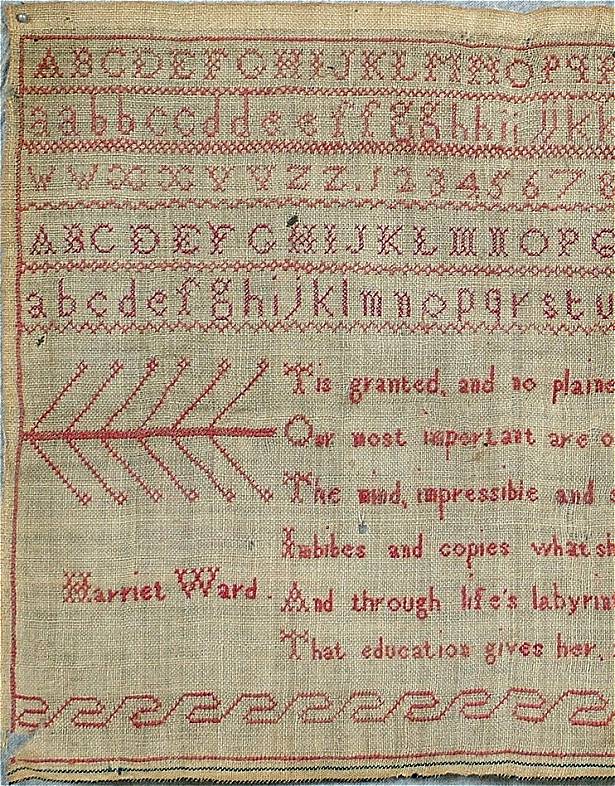 A B C D E F G H I J K L M N O P Q
a a b b c c d d e e f f g g h h i i j j k
W W X X Y Y Z Z . 1 2 3 4 5 6 7
A B C D E F G H I J K L M N O P
a b c d e f g h i j k l m n o p q r s t u
Tis granted, and no plaine
Our most important are o
The mind, impressible and s
Imbibes and copies what sh
Harriet Ward . And through life's labyrin
That education gives her,